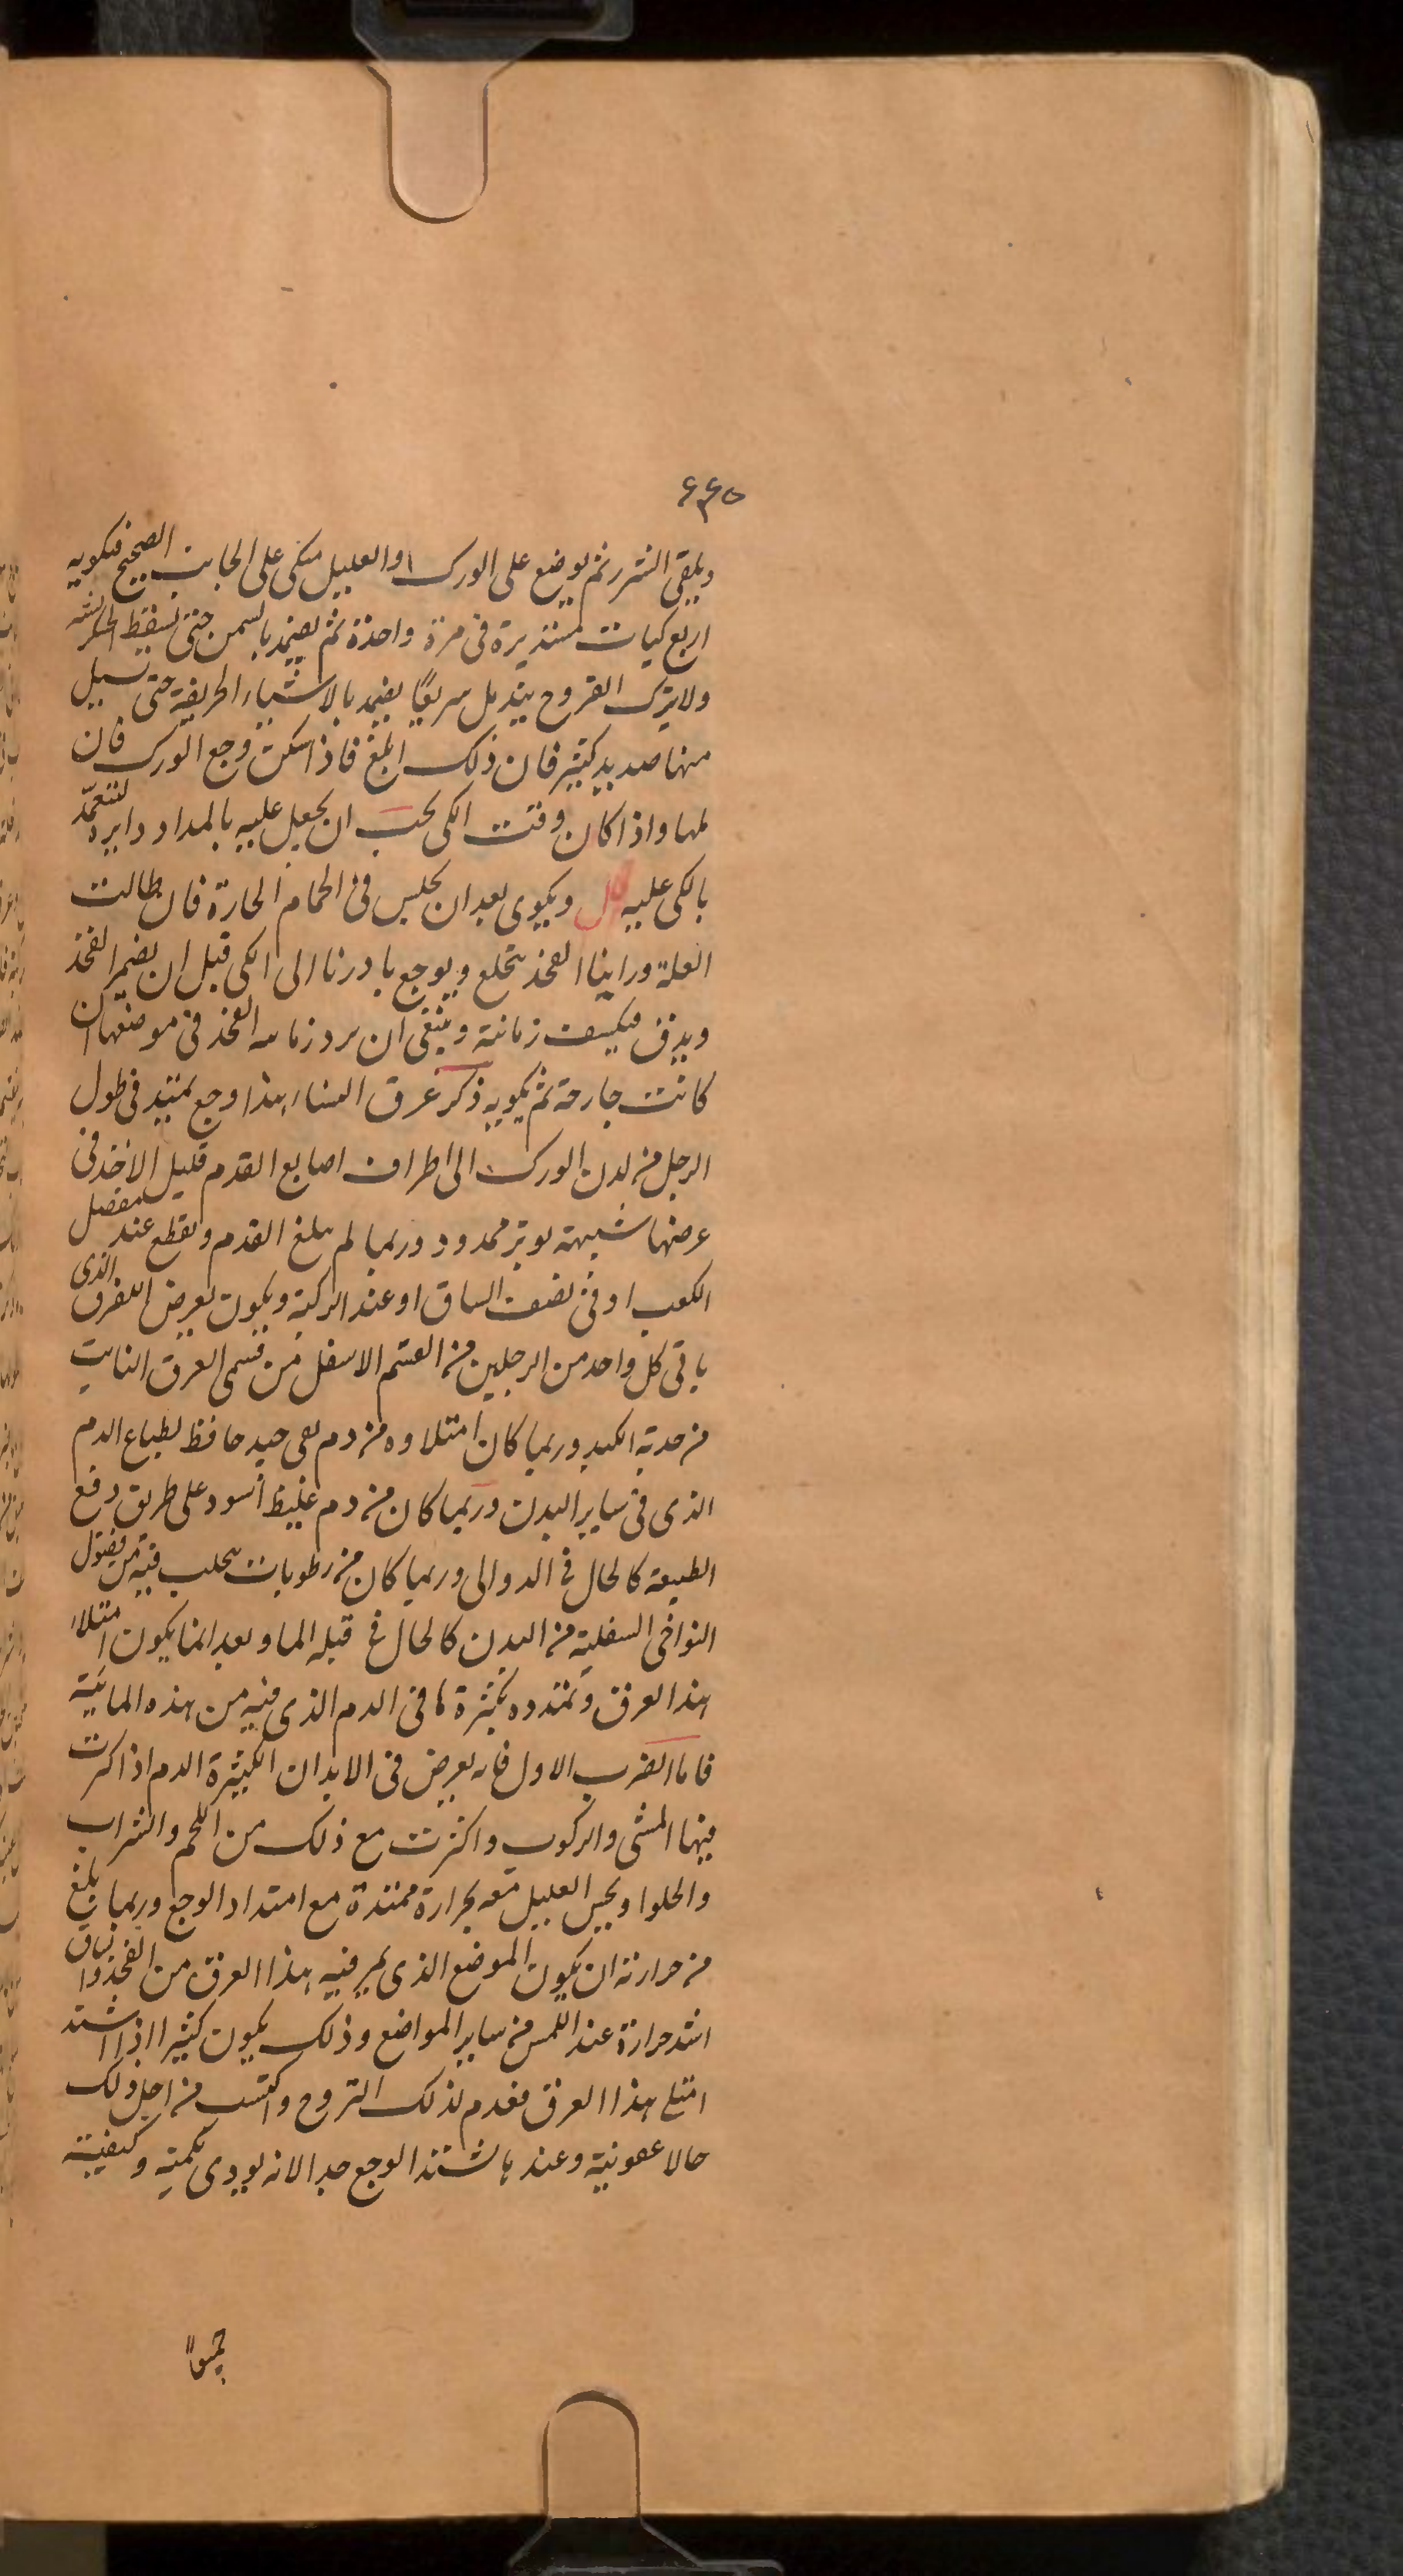 ۶۶۵
ويلقى الشرر ثم يوضع على الورك والعليل متكى على الجانب الصحيح فيكويه
اربع كيات مستديرة فى مرة واحدة ثم يضمد بالسمن حتى تسقط
ولا يترك القروح يندمل سريعًا يضمد بالاشياء الحريفة حتى تسيل
منها صديد كثير فان ذلك ابلغ فاذا سكن وجع الورك فان
لها واذا كان وقت الكى يجب ان يجعل عليه بالمداد دايرة لتتعمد
بالكى عليه ويكوى بعد ان يجلس فى الحمام الحارة فان طالت
العلة وراينا الفخذ يتخلع ويوجع بادرنا الى الكى قبل ان يضمر الفخذ
ويدق فيكسف زمانته وينبغى ان يرد الفخذ فى موضعها ان
كانت خارجة ثم يكويه ذكر عرق النساء هذا وجع يمتد فى طول
الرجل من لدن الورك الى اطراف اصابع القدم قليل الاخذ فى
عرضها شبيهة بوتر ممدود وربما لم يبلغ القدم ويقطع عند مفصل
الكعب او فى نصف الساق او عند الركبة ويكون يعرض العرق الذى
ياتى كل واحد من الرجلين من القسم الاسفل من قسمى العرق النابت
من حدبة الكبد وربما كان امتلاوه من دم نقى جيد حافظ لطباع الدم
الذى فى ساير البدن وربما كان من دم غليظ اسود على طريق دفع
الطبيعة كالحال فى الدوالى وربما كان من رطوبات يتحلب فيه من فضول
النواحى السفلية من البدن كالحال فى قيلة الما وبعد انما يكون امتلاء
هذا العرق وتمدده بكثرة ما فى الدم الذى فيه من هذه المائية
فاما الضرب الاول فانه يعرض فى الابدان الكثيرة الدم اذا كرت
فيها المشى والركوب واكثرت مع ذلك من اللحم والشراب
والحلوا ويحس العليل معه بحرارة ممتدة مع امتداد الوجع وربما بلغ
من حرارته ان يكون الموضع الذى يمر فيه هذا العرق من الفخذ والساق
اشد حرارة عند اللمس من ساير المواضع وذلك يكون كثيرا اذا اشتد
امتلى هذا العرق فعدم لذلك التروح واكتسب من اجل ذلك
حالا عفونية وعندها يشتد الوجع جدا لانه يودى بكميته وكيفيته
جميعا